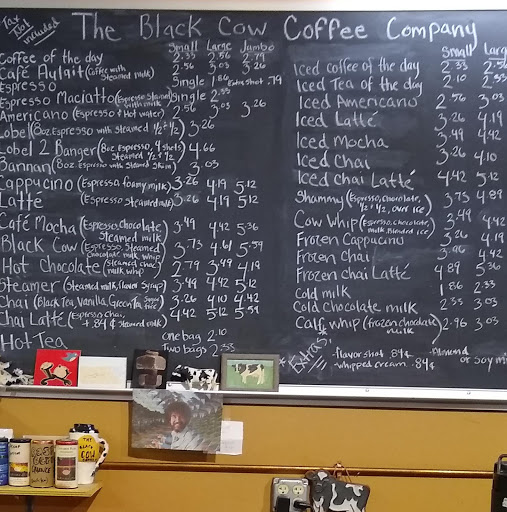 Tax Not Included
The Black Cow Coffee Company
Small Large Jambo
Coffee of the day 2.33 2.56 2.79
Café Aulait (Coffee with steamed milk) 2.56 3.03 3.26
Espresso Single 1.86 Extra shot .79
Espresso Maciatto (Espresso Stained with milk) Single 2.33
Americano (Espresso & Hot water) 2.56 3.03 3.26
Lobel (8oz Espresso with steamed ½ & ½) 3.26
Lobel 2 Banger (8oz Espresso, 4 shots) Steamed ½ & ½ 4.66
Bannan (8oz Espresso with Steamed Skim) 3.03
Cappucino (Espresso foamy milk) 3.26 4.19 5.12
Latté (Espresso Steamed milk) 3.26 4.19 5.12
Café Mocha (Espresso, Chocolate, Steamed milk) 3.49 4.42 5.36
Black Cow (Espresso, Steamed Chocolate milk, whip) 3.73 4.61 5.59
Hot Chocolate (Steamed choc milk whip) 2.79 3.49 4.19
Steamer (Steamed milk, flavor Syrup) 3.49 4.42 5.12
Chai (Black Tea, Vanilla, Green Tea 3.26 4.10 4.42
Chai Latté (Espresso Chai, + .84 ¢ Steamed milk) 3.73 4.54 5.12
Hot Tea one bag 2.10
Two bags 2.33
Small Large
Iced coffee of the day 2.33 2.56
Iced Tea of the day 2.10 2.33
Iced Americano 2.56 3.03
Iced Latté 3.26 4.19
Iced Mocha 3.49 4.42
Iced Chai 3.26 4.10
Iced Chai Latté 4.42 5.12
Shammy (Espresso, chocolate, ½ & ½, over ice) 3.73 4.89
Cow Whip (Espresso, chocolate, milk Blended ice) 3.49 4.42
Frozen Cappucino 3.26 4.19
Frozen chai 3.96 4.42
Frozen chai Latté 4.89 5.36
Cold milk 1.86 2.33
Cold chocolate milk 2.33 3.03
Calf whip (frozen chocolate milk) 2.96 3.03
* Extras:
-flavor shot .84¢ -Almond
-whipped cream .84¢ or Soy mi
The Black COW